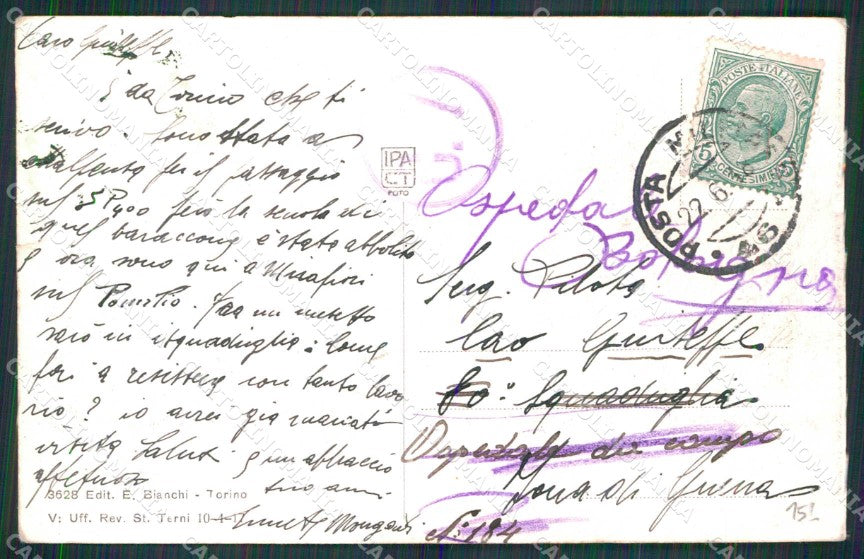 Caro Giuseppe
È da Torino che ti
scrivo. Sono stato a
Malpensa per il passaggio
sul SP400 però la scuola di
quel baraccone è stata abolita
e ora sono qui a Mirafiori
sul Pomilio. Fra un mesetto
sarò in squadriglia: Come
fai a resistere con tanto lavo
rio? io avrei già marcato
visita Saluti e un abbraccio
affettuoso tuo
3628 Edit. E. Bianchi - Torino
V: Uff. Rev. St. Terni 10-4-1
IPA
CT
FOTO
POSTE ITALIANE
CENTESIMI
POSTA MI
46
Ospedale
Bologna
Serg. Pilota
Cao Giuseppe
Squadriglia
Ospedale da campo
Zona di Guerra
N. 184
15L
CARTOLINOMANIA